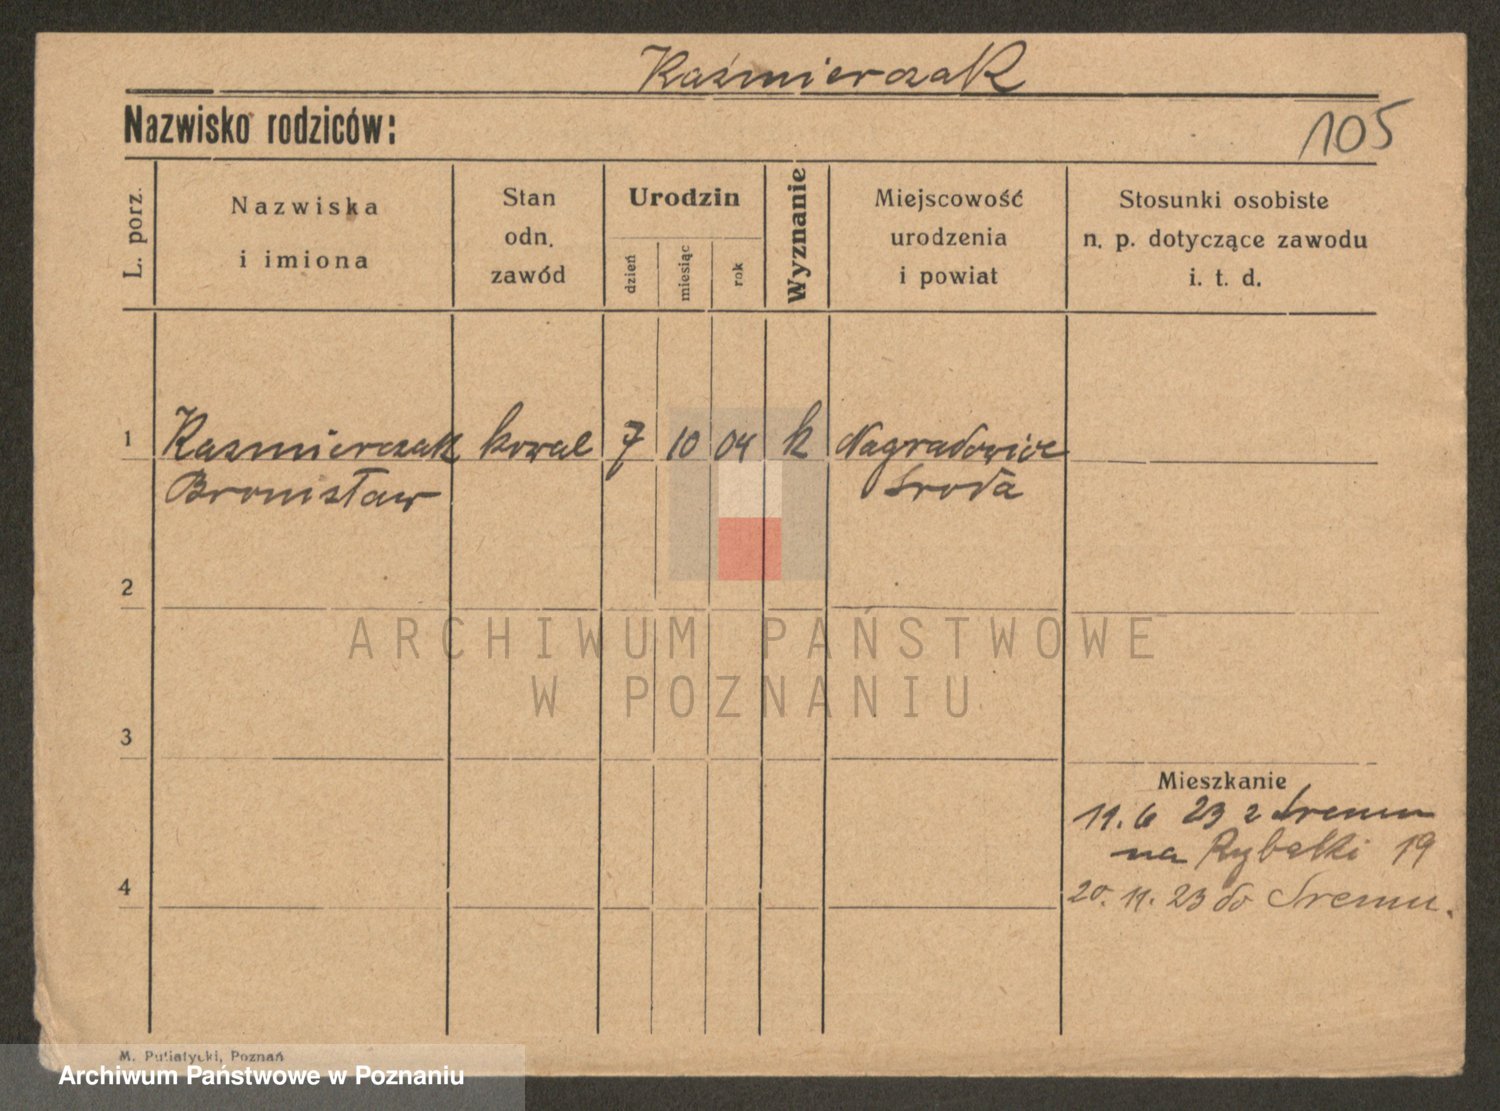 Kaźmierczak
Nazwisko rodziców:
105
L. porz.
Nazwiska
i imiona
Stan
odn.
zawód
Urodzin
dzień
miesiąc
rok
Wyznanie
Miejscowość
urodzenia
i powiat
Stosunki osobiste
n. p. dotyczące zawodu
i. t. d.
1 Kazmierczak kowal 7 10 04 k Nagradowice
Bronisław Środa
2
3
4
Mieszkanie
11. 6 23 z Śremu
na Rybaki 19
20. 11. 23 do Śremu.
ARCHIWUM PAŃSTWOWE
W POZNANIU
M. Putiatycki, Poznań
Archiwum Państwowe w Poznaniu